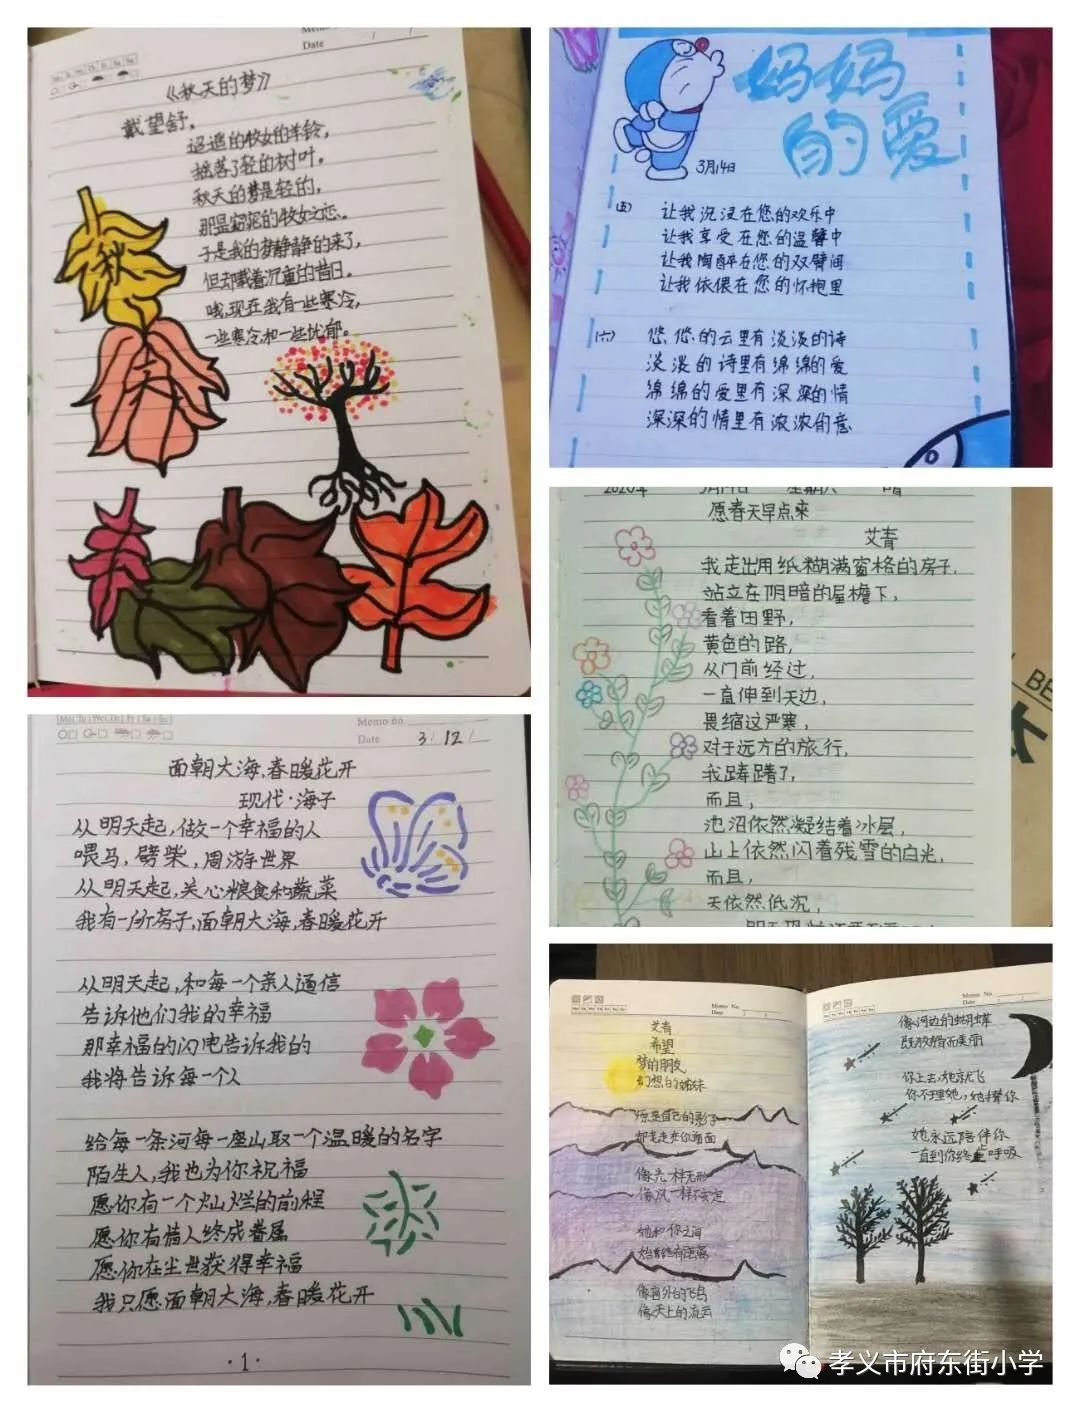 Date
《秋天的梦》
戴望舒。
迢遥的牧女的羊铃，
摇落了轻的树叶。
秋天的梦是轻的，
那是窈窕的牧女之恋。
于是我的梦静静的来了，
但却载着沉重的昔日。
哦，现在我有一些寒冷，
一些寒冷和一些忧郁。
妈妈
的爱
3月14日
(五)
让我沉浸在您的欢乐中
让我享受在您的温馨中
让我陶醉在您的双臂间
让我依偎在您的怀抱里
(六)
悠悠的云里有淡淡的诗
淡淡的诗里有绵绵的爱
绵绵的爱里有深深的情
深深的情里有浓浓的意
愿春天早点来
艾青
我走出用纸糊满窗格的房子，
站立在阴暗的屋檐下，
看着田野，
黄色的路，
从门前经过，
一直伸到天边，
畏缩这严寒，
对于远方的旅行，
我踌躇了，
而且，
池沼依然凝结着冰层，
山上依然闪着残雪的白光，
而且，
天依然低沉，
Memo no
Date 3/12/
面朝大海，春暖花开
现代·海子
从明天起，做一个幸福的人
喂马，劈柴，周游世界
从明天起，关心粮食和蔬菜
我有一所房子，面朝大海，春暖花开
从明天起，和每一个亲人通信
告诉他们我的幸福
那幸福的闪电告诉我的
我将告诉每一个人
给每一条河每一座山取一个温暖的名字
陌生人，我也为你祝福
愿你有一个灿烂的前程
愿你有情人终成眷属
愿你在尘世获得幸福
我只愿面朝大海，春暖花开
·1·
Memo No.
Date
艾青
希望
梦的朋友
幻想的姊妹
原是自己的影子
却老走在你前面
像光一样无形
像风一样不安定
她和你之间
始终有距离
像窗外的飞鸟
像天上的流云
Memo No.
Date
像河边的蝴蝶
既狡猾而美丽
你上去，她就飞
你不理她，她撵你
她永远陪伴你
一直到你终止呼吸
孝义市府东街小学